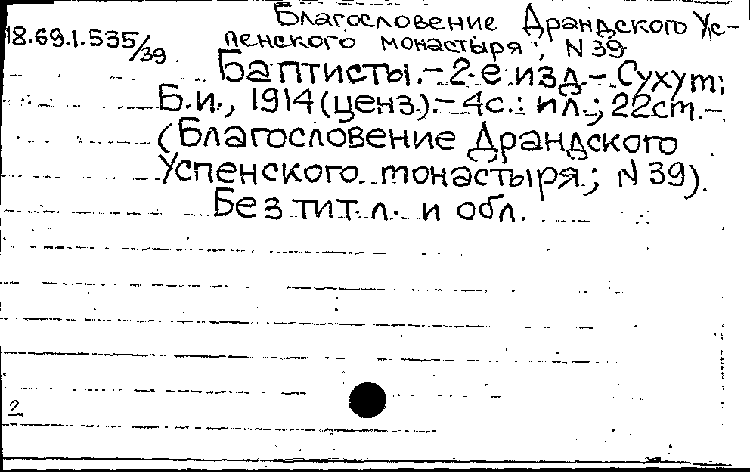 Благословение Драндского Ус-
18.69.1.535/39 пенского монастыря; N 39
Баптисты.-2-е изд.- Сухум:
Б.и., 1914 (ценз.).- 4с.: ил.; 22см.-
(Благословение Драндского
Успенского монастыря; N 39).
Без тит. л. и обл.
2